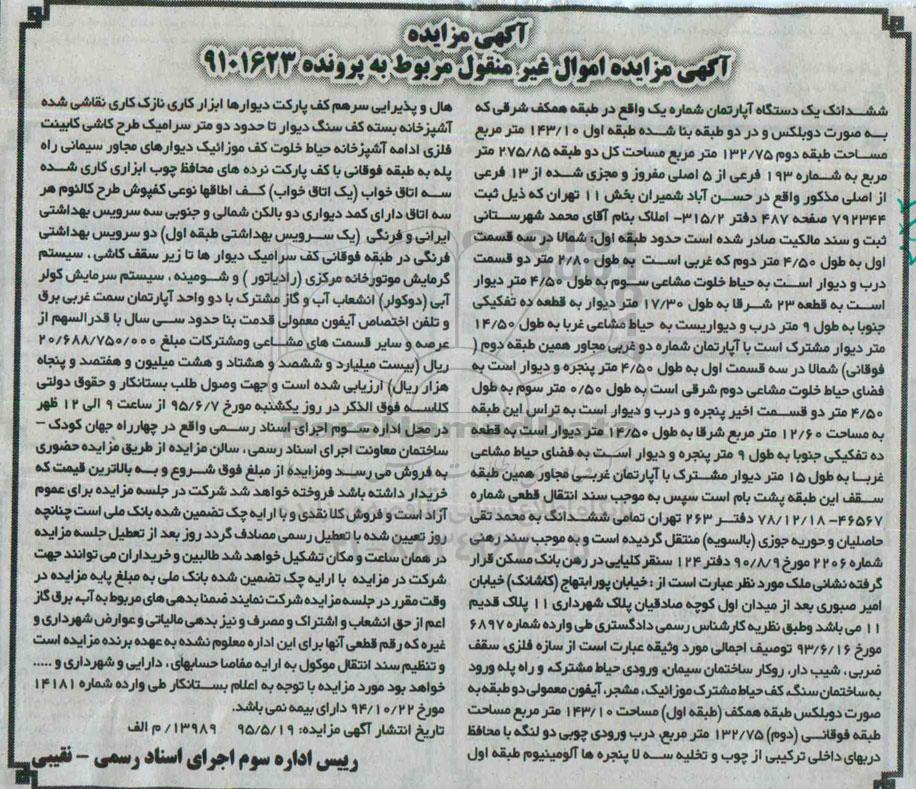 آگهی مزایده
آگهی مزایده اموال غیر منقول مربوط به پرونده ۹۱۰۱۶۲۳
ششدانگ یک دستگاه آپارتمان شماره یک واقع در طبقه همکف شرقی که
به صورت دوبلکس و در دو طبقه بنا شده طبقه اول ۱۴۳/۱۰ متر مربع
مساحت طبقه دوم ۱۳۲/۷۵ متر مربع مساحت کل دو طبقه ۲۷۵/۸۵ متر
مربع به شماره ۱۹۳ فرعی از ۵ اصلی مفروز و مجزی شده از ۱۳ فرعی
از اصلی مذکور واقع در حسن آباد شمیران بخش ۱۱ تهران که ذیل ثبت
۷۹۲۳۴۴ صفحه ۴۸۷ دفتر ۳۱۵/۲- املاک بنام آقای محمد شهرستانی
ثبت و سند مالکیت صادر شده است حدود طبقه اول: شمالا در سه قسمت
اول به طول ۴/۵۰ متر دوم که غربی است به طول ۲/۸۰ متر دو قسمت
درب و دیوار است به حیاط خلوت مشاعی سوم به طول ۴/۵۰ متر دیوار
است به قطعه ۲۳ شرقا به طول ۱۷/۳۰ متر دیوار به قطعه ده تفکیکی
جنوبا به طول ۹ متر درب و دیواریست به حیاط مشاعی غربا به طول ۱۴/۵۰
متر دیوار مشترک است با آپارتمان شماره دو غربی مجاور همین طبقه دوم (
فوقانی) شمالا در سه قسمت اول به طول ۴/۵۰ متر پنجره و دیوار است به
فضای حیاط خلوت مشاعی دوم شرقی است به طول ۰/۵۰ متر سوم به طول
۴/۵۰ متر دو قسمت اخیر پنجره و درب و دیوار است به تراس این طبقه
به مساحت ۱۲/۶۰ متر مربع شرقا به طول ۱۴/۵۰ متر دیوار است به قطعه
ده تفکیکی جنوبا به طول ۹ متر پنجره و دیوار است به فضای حیاط مشاعی
غربا به طول ۱۵ متر دیوار مشترک با آپارتمان غربی مجاور همین طبقه
سقف این طبقه پشت بام است سپس به موجب سند انتقال قطعی شماره
۴۶۵۶۷- ۷۸/۱۲/۱۸ دفتر ۲۶۳ تهران تمامی ششدانگ به محمد تقی
حاصلیان و حوریه جوزی (بالسویه) منتقل گردیده است و به موجب سند رهنی
شماره ۲۲۰۶ مورخ ۹۰/۸/۹ دفتر ۱۲۴ سنقر کلیایی در رهن بانک مسکن قرار
گرفته نشانی ملک مورد نظر عبارت است از : خیابان پورابتهاج (کاشانک) خیابان
امیر صبوری بعد از میدان اول کوچه صادقیان پلاک شهرداری ۱۱ پلاک قدیم
۱۱ می باشد وطبق نظریه کارشناس رسمی دادگستری طی وارده شماره ۶۸۹۷
مورخ ۹۳/۶/۱۶ توصیف اجمالی مورد وثیقه عبارت است از سازه فلزی، سقف
ضربی ، شیب دار، روکار ساختمان سیمان، ورودی حیاط مشترک، و راه پله ورود
به ساختمان سنگ، کف حیاط مشترک موزائیک، مشجر، آیفون معمولی دو طبقه به
صورت دوبلکس طبقه همکف (طبقه اول) مساحت ۱۴۳/۱۰ متر مربع مساحت
طبقه فوقانی (دوم) ۱۳۲/۷۵ متر مربع، درب ورودی چوبی دو لنگه با محافظ
دربهای داخلی ترکیبی از چوب و تخلیه سه لا پنجره ها آلومینیوم طبقه اول
هال و پذیرایی سرهم کف پارکت دیوارها ابزار کاری نازک کاری نقاشی شده
آشپزخانه بسته کف سنگ دیوار تا حدود دو متر سرامیک طرح کاشی کابینت
فلزی ادامه آشپزخانه حیاط خلوت کف موزائیک دیوارهای مجاور سیمانی راه
پله به طبقه فوقانی با کف پارکت نرده های محافظ چوب ابزاری کاری شده
سه اتاق خواب (یک اتاق خواب) کف اطاقها نوعی کفپوش طرح کالئوم هر
سه اتاق دارای کمد دیواری دو بالکن شمالی و جنوبی سه سرویس بهداشتی
ایرانی و فرنگی (یک سرویس بهداشتی طبقه اول) دو سرویس بهداشتی
فرنگی در طبقه فوقانی کف سرامیک دیوار ها تا زیر سقف کاشی ، سیستم
گرمایش موتورخانه مرکزی (رادیاتور ) و شومینه ، سیستم سرمایش کولر
آبی (دوکولر) انشعاب آب و گاز مشترک با دو واحد آپارتمان سمت غربی برق
و تلفن اختصاص آیفون معمولی قدمت بنا حدود سی سال با قدرالسهم از
عرصه و سایر قسمت های مشاعی ومشترکات مبلغ ۲۰/۶۸۸/۷۵۰/۰۰۰
ریال (بیست میلیارد و ششصد و هشتاد و هشت میلیون و هفتصد و پنجاه
هزار ریال) ارزیابی شده است و جهت وصول طلب بستانکار و حقوق دولتی
کلاسه فوق الذکر در روز یکشنبه مورخ ۹۵/۶/۷ از ساعت ۹ الی ۱۲ ظهر
در محل اداره سوم اجرای اسناد رسمی واقع در چهارراه جهان کودک –
ساختمان معاونت اجرای اسناد رسمی ، سالن مزایده از طریق مزایده حضوری
به فروش می رسد ومزایده از مبلغ فوق شروع و به بالاترین قیمت که
خریدار داشته باشد فروخته خواهد شد شرکت در جلسه مزایده برای عموم
آزاد است و فروش کلا نقدی و با ارایه چک تضمین شده بانک ملی است چنانچه
روز تعیین شده با تعطیل رسمی مصادف گردد روز بعد از تعطیل جلسه مزایده
در همان ساعت و مکان تشکیل خواهد شد طالبین و خریداران می توانند جهت
شرکت در مزایده با ارایه چک تضمین شده بانک ملی به مبلغ پایه مزایده در
وقت مقرر در جلسه مزایده شرکت نمایند ضمنا بدهی های مربوط به آب، برق گاز
اعم از حق انشعاب و اشتراک و مصرف و نیز بدهی مالیاتی و عوارض شهرداری و
غیره که رقم قطعی آنها برای این اداره معلوم نشده به عهده برنده مزایده است
و تنظیم سند انتقال موکول به ارایه مفاصا حسابهای ، دارایی و شهرداری و .....
خواهد بود مورد مزایده با توجه به اعلام بستانکار طی وارده شماره ۱۴۱۸۱
مورخ ۹۴/۱۰/۲۲ دارای بیمه نمی باشد.
تاریخ انتشار آگهی مزایده: ۹۵/۵/۱۹ ۱۳۹۸۹/ م الف
رییس اداره سوم اجرای اسناد رسمی – نقیبی